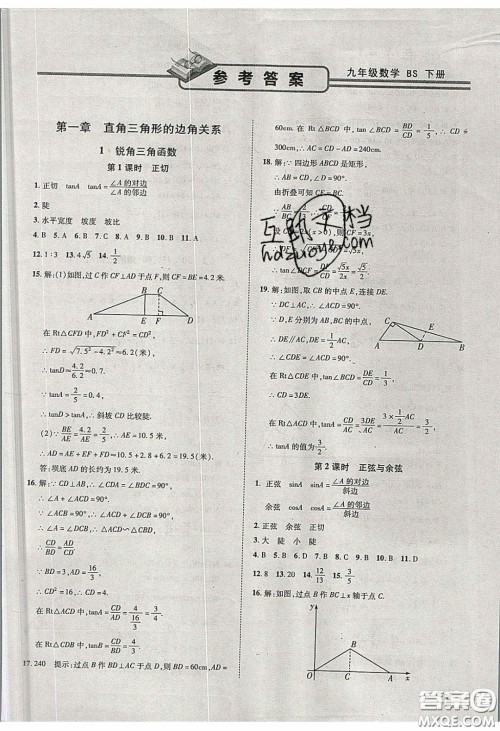 参考答案
九年级数学 BS 下册
第一章 直角三角形的边角关系
1 锐角三角函数
第1课时 正切
1. 正切 tanA tanA=∠A的对边/∠A的邻边
2. 陡
3. 水平宽度 坡度 坡比
4. B 5. A 6. A 7. A 8. A 9. B 10. A 11. A
12. 1:3 13. 4√5 14. 1/2
15. 解:(1)如图,过C作CF⊥AD于点F,则CF=BE=4.2米.
A B C D E F
在Rt△CFD中,
∵FD²+CF²=CD²
∴FD=√7.5²-4.2²≈6.2(米),
∴tanD≈4.2/6.2≈0.7.
∵tanA=2/5=0.4,
∴tanD>tanA,∴斜坡CD比较陡.
(2)∵BE/AE=4.2/AE=2/5,
∴AD=AE+EF+FD≈19.5(米).
答:坝底AD的长约为19.5米.
16. 解:∵CD⊥AB,∴∠ADC=∠BDC=90°.
∴∠A+∠ACD=90°.
∵∠ACD+∠BCD=∠ACB=90°,
∴∠A=∠BCD,
∴△ACD∽△CBD,
∴CD/BD=AD/CD.
∵BD=3,CD=4,∴AD=16/3,
在Rt△ACD中,tanA=CD/AD
17. 240 提示:过点B作BD⊥AC于点D,则BD=60cm,AD=
60cm.在Rt△BCD中,∵tan∠BCD=BD/CD=1/5,
∴CD=300cm,∴AC=CD-AD=240cm.
18. 解:∵四边形ABCD是矩形,
由折叠可知BC=CF.
19. 解:如图,取CB的中点E,连接DE.
∵DC⊥AC,∴∠ACD=90°.
∵D,E分别为AB,BC的中点,
∴DE∥AC,DE=1/2AC,
∴∠CDE=∠ACD=90°,
∵在Rt△CDE中,tan∠BCD=DE/CD=1/3,
∴CD=3DE,∴tanA=CD/AC=3DE/AC=3×1/2AC/AC=3/2,
∴tanA的值为3/2.
A B C D E
第2课时 正弦与余弦
1. 正弦 sinA sinA=∠A的对边/斜边
余弦 cosA cosA=∠A的邻边/斜边
2. 正弦 余弦 正切
3. 大 陡 小 陡
4. B 5. D 6. A 7. A 8. C 9. B 10. D 11. B
12. 8 13. 20 14. 12/13 15. 4/3
16. 解:如图,过点B作BC⊥x轴于点C.
y B O C A x
答案圈
MXQE.COM